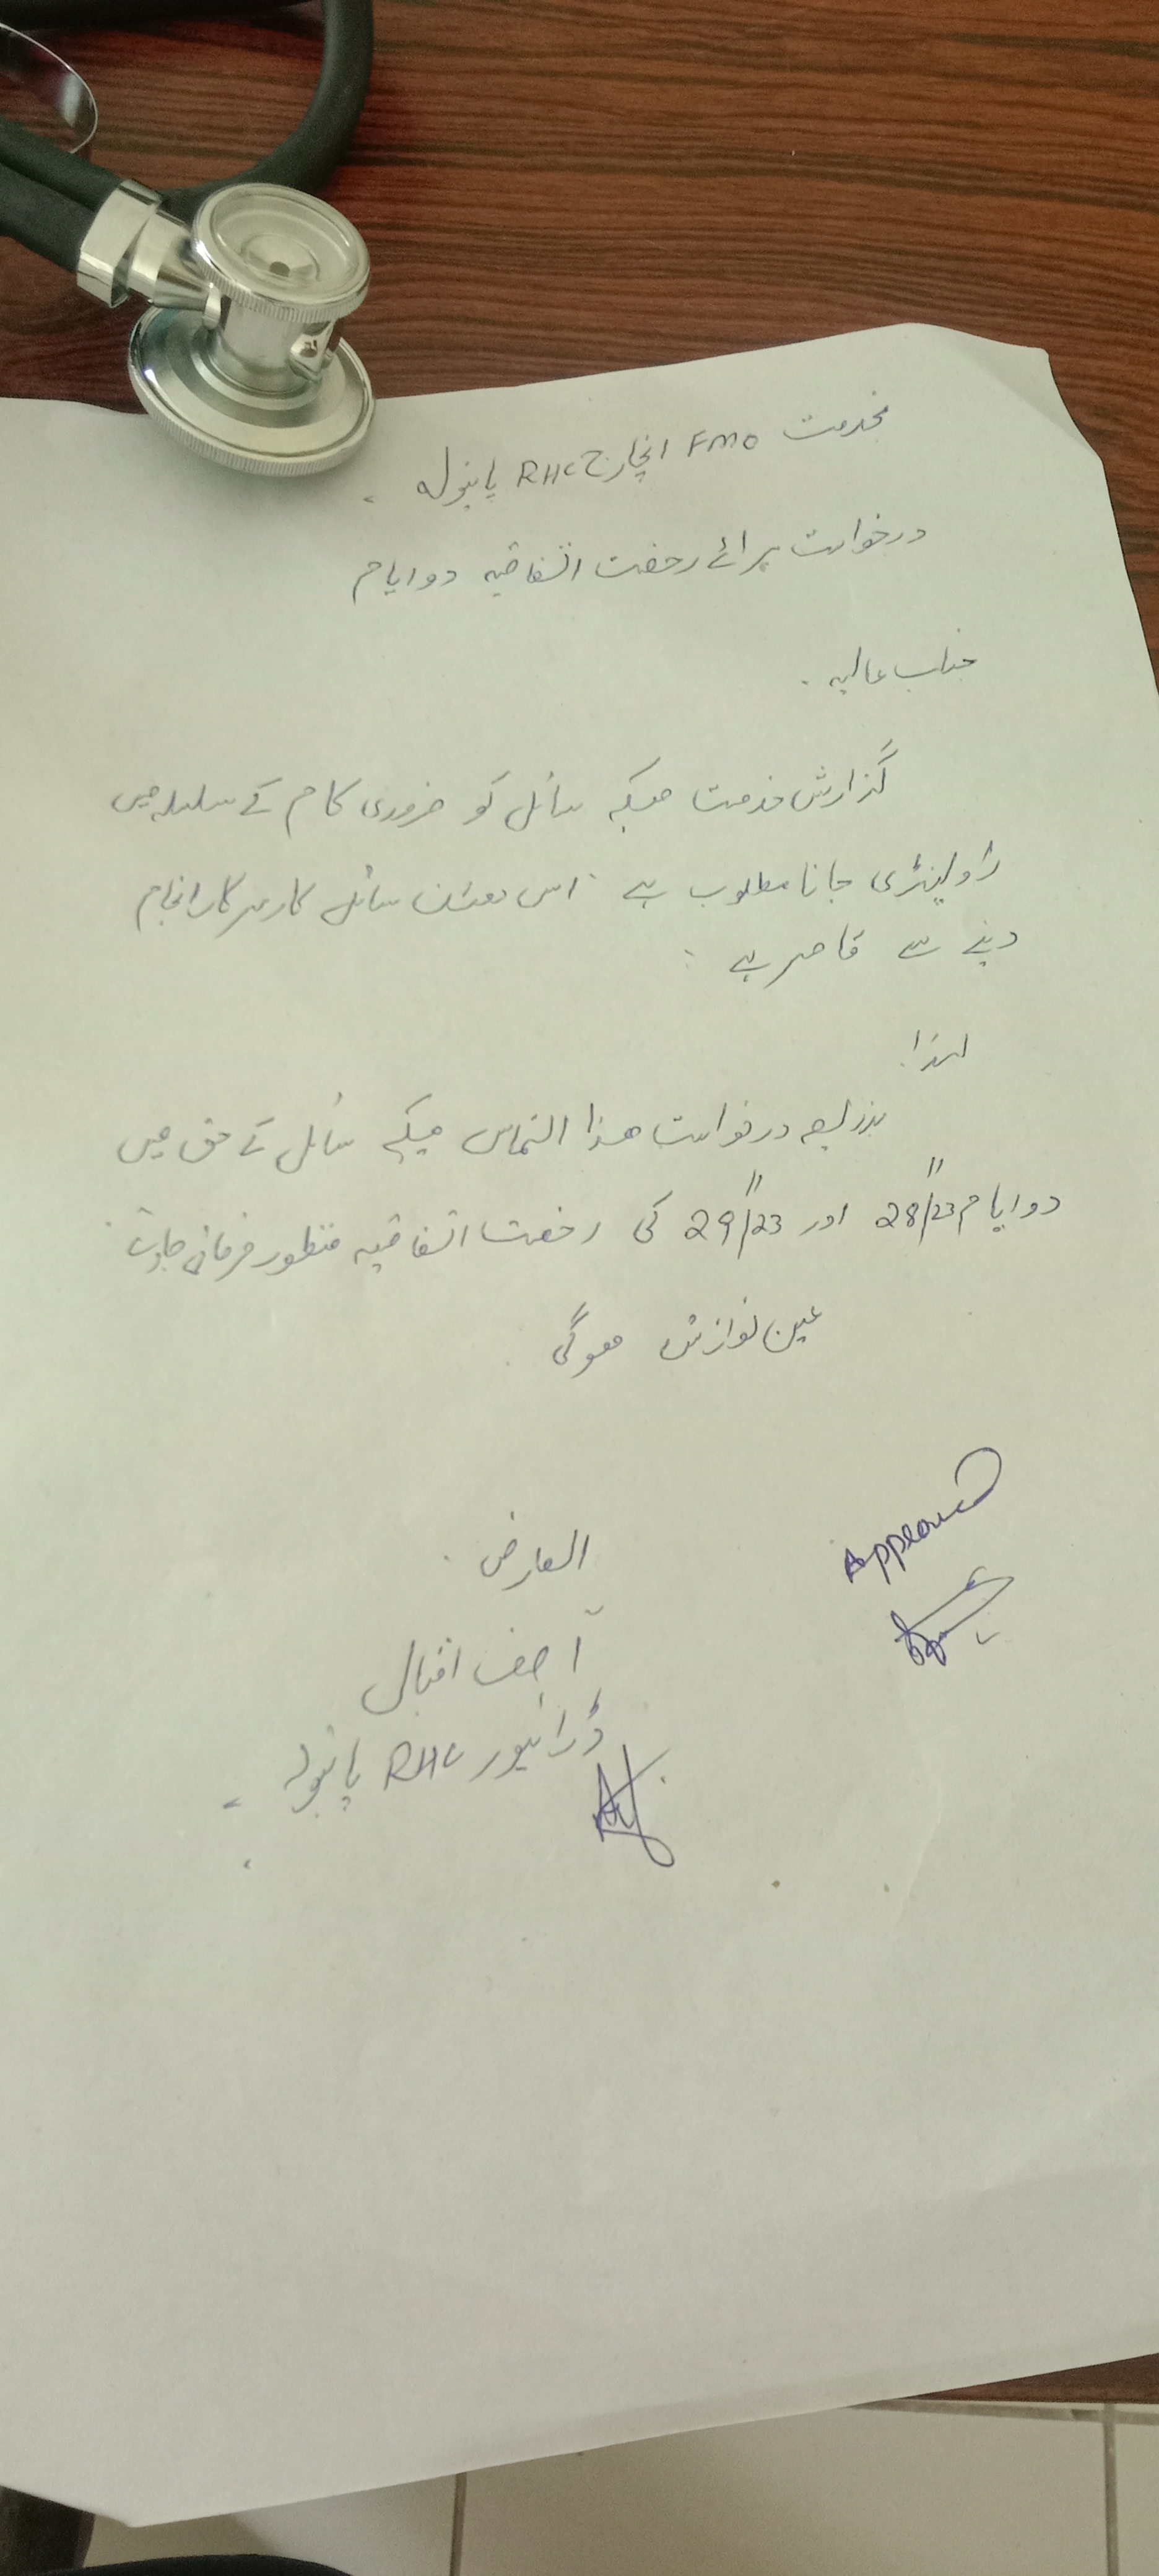 بخدمت FMO انچارج RHC پانیولہ ۔
درخواست برائے رخصت اتفاقیہ دو ایام
جناب عالیہ ۔
گذارش خدمت ھیکہ سائل کو ضروری کام کے سلسلہ میں
راولپنڈی جانا مطلوب ہے ۔ اس دوران سائل کار سرکار انجام
دینے سے قاصر ہے ۔
لہذا
بذریعہ درخواست ھذا التماس ھیکہ سائل کے حق میں
دو ایام 28/11/23 اور 29/11/23 کی رخصت اتفاقیہ منظور فرمائی جاوے ۔
عین نوازش ھوگی
Approved
العارض ۔
آصف اقبال
ڈرائیور RHC پانیولہ ۔